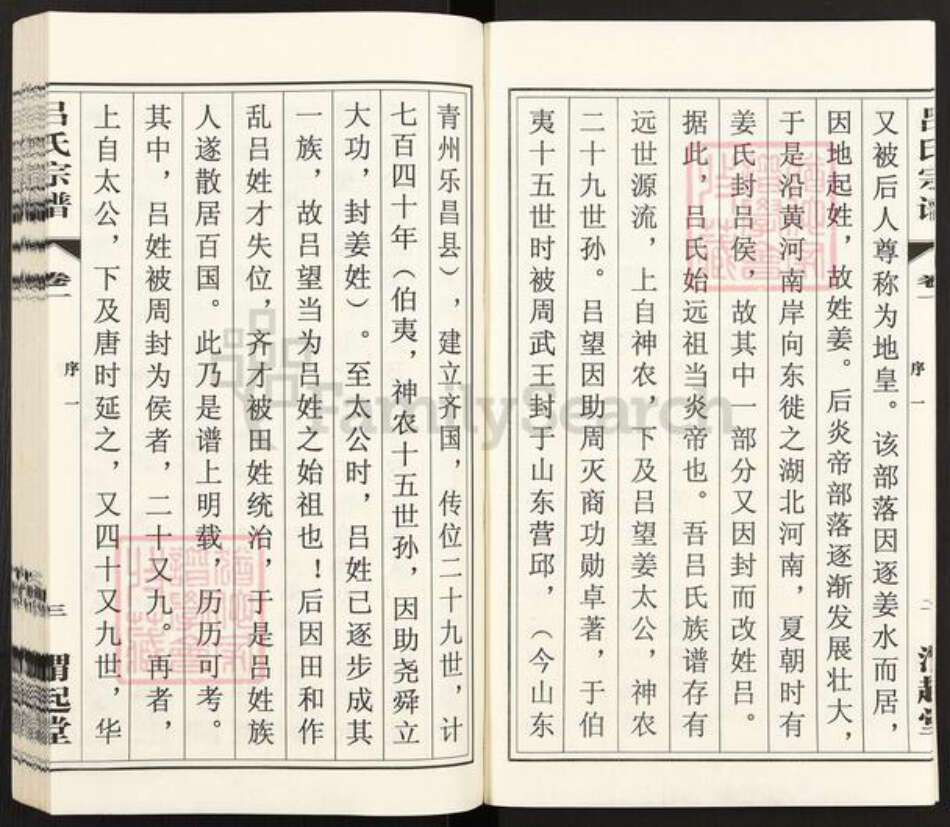 吕氏宗谱
卷一
序一
二
渭起堂
又被后人尊称为地皇。该部落因逐姜水而居，
因地起姓，故姓姜。后炎帝部落逐渐发展壮大，
于是沿黄河南岸向东徙之湖北河南，夏朝时有
姜氏封吕侯，故其中一部分又因封而改姓吕。
据此，吕氏始远祖当炎帝也。吾吕氏族谱存有
远世源流，上自神农，下及吕望姜太公，神农
二十九世孙。吕望因助周灭商功勋卓著，于伯
夷十五世时被周武王封于山东营邱，（今山东
青州乐昌县），建立齐国，传位二十九世，计
七百四十年（伯夷，神农十五世孙，因助尧舜立
大功，封姜姓）。至太公时，吕姓已逐步成其
一族，故吕望当为吕姓之始祖也！后因田和作
乱吕姓才失位，齐才被田姓统治，于是吕姓族
人遂散居百国。此乃是谱上明载，历历可考。
其中，吕姓被周封为侯者，二十又九。再者，
上自太公，下及唐时延之，又四十又九世，华
吕氏宗谱
卷一
序一
三
渭起堂
FamilySearch